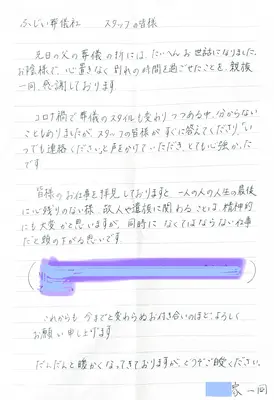 ふじい葬儀社　スタッフの皆様
先日の父の葬儀の折には、たいへんお世話になりました。
お陰様で、心置きなく別れの時間を過ごせたことを、親族
一同、感謝しております
コロナ禍で葬儀のスタイルも変わりつつある中、分からない
こともありましたが、スタッフの皆様がすぐに答えてくださり「い
つでも連絡ください」と声をかけていただき、とても心強かった
です
皆様のお仕事を拝見しておりますと 一人の人の人生の最後
に心残りのない様、故人や遺族に関わることは、精神的
にも大変かと思いますが、同時になくてはならないお仕事
だと頭の下がる思いです
これからも 今までと変わらぬお付き合いのほど、よろしく
お願い申し上げます
だんだんと暖かくなってきておりますが、くれぐれもご自愛ください。
家一同